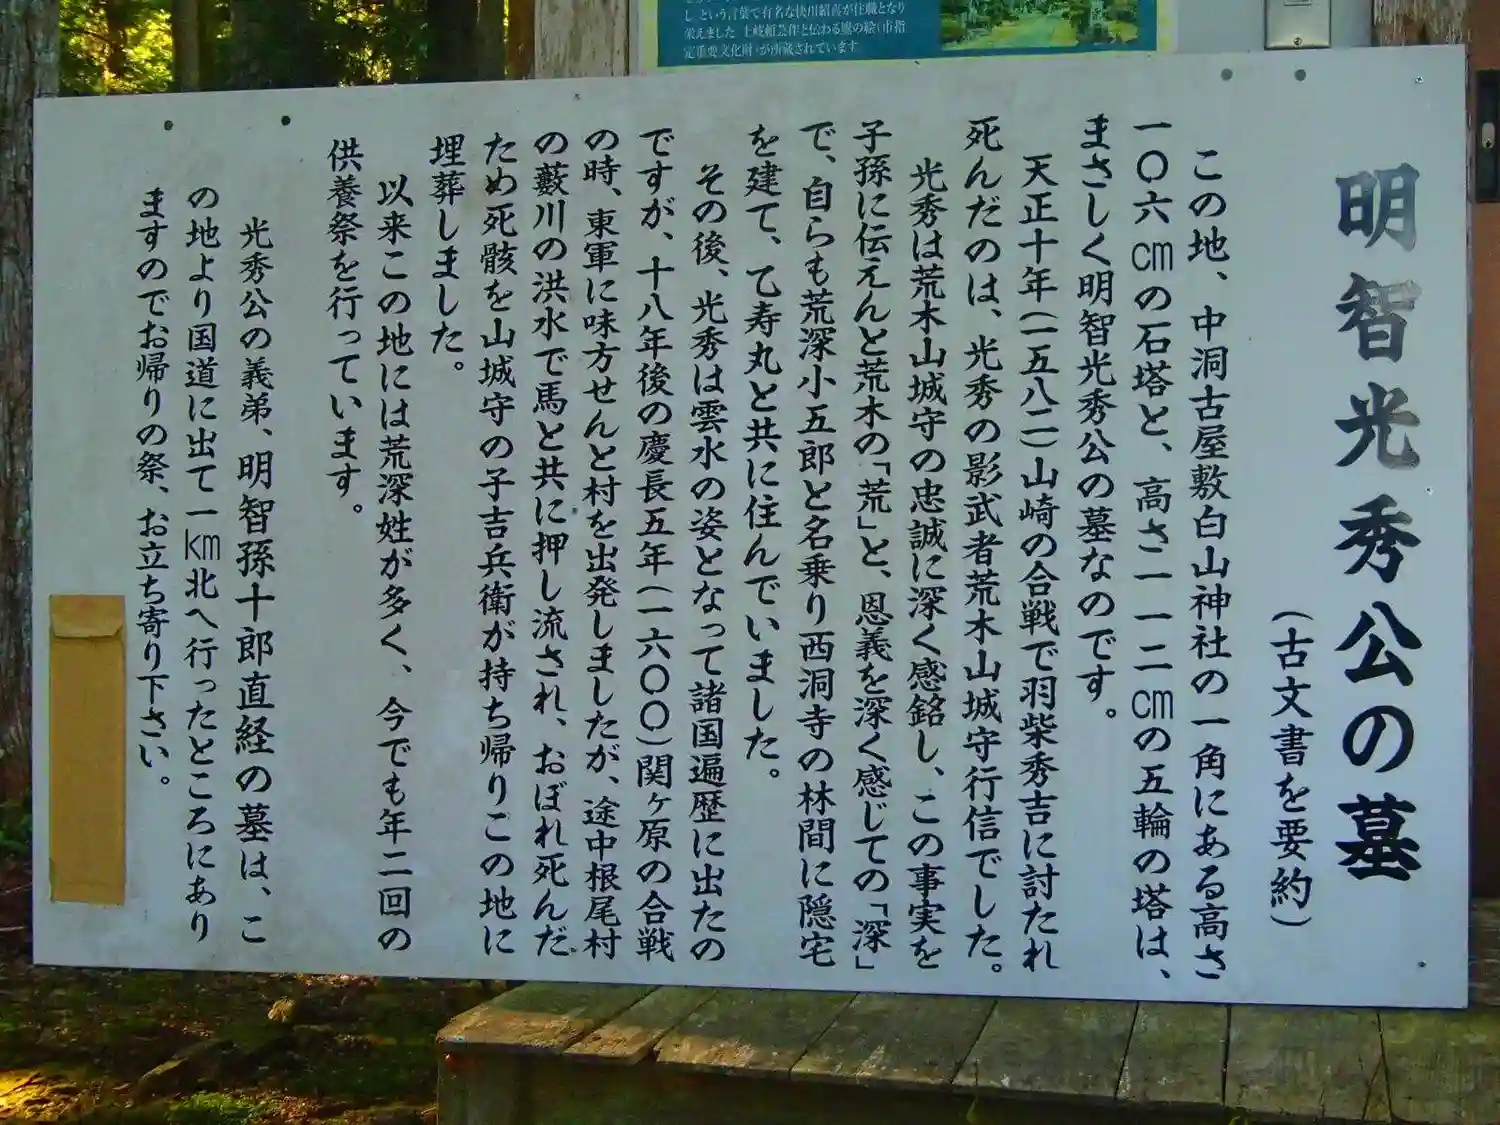 し という言葉で有名な快川紹喜が住職となり
栄えました 土岐頼芸作と伝わる鷹の絵(市指
定重要文化財)が所蔵されています
明智光秀公の墓
(古文書を要約)
この地、中洞古屋敷白山神社の一角にある高さ
一〇六㎝の石塔と、高さ一一二㎝の五輪の塔は、
まさしく明智光秀公の墓なのです。
天正十年(一五八二)山崎の合戦で羽柴秀吉に討たれ
死んだのは、光秀の影武者荒木山城守行信でした。
光秀は荒木山城守の忠誠に深く感銘し、この事実を
子孫に伝えんと荒木の「荒」と、恩義を深く感じての「深」
で、自らも荒深小五郎と名乗り西洞寺の林間に隠宅
を建て、乙寿丸と共に住んでいました。
その後、光秀は雲水の姿となって諸国遍歴に出たの
ですが、十八年後の慶長五年(一六〇〇)関ヶ原の合戦
の時、東軍に味方せんと村を出発しましたが、途中根尾村
の藪川の洪水で馬と共に押し流され、おぼれ死んだ
ため死骸を山城守の子吉兵衛が持ち帰りこの地に
埋葬しました。
以来この地には荒深姓が多く、今でも年二回の
供養祭を行っています。
光秀公の義弟、明智孫十郎直経の墓は、こ
の地より国道に出て一㎞北へ行ったところにあり
ますのでお帰りの祭、お立ち寄り下さい。